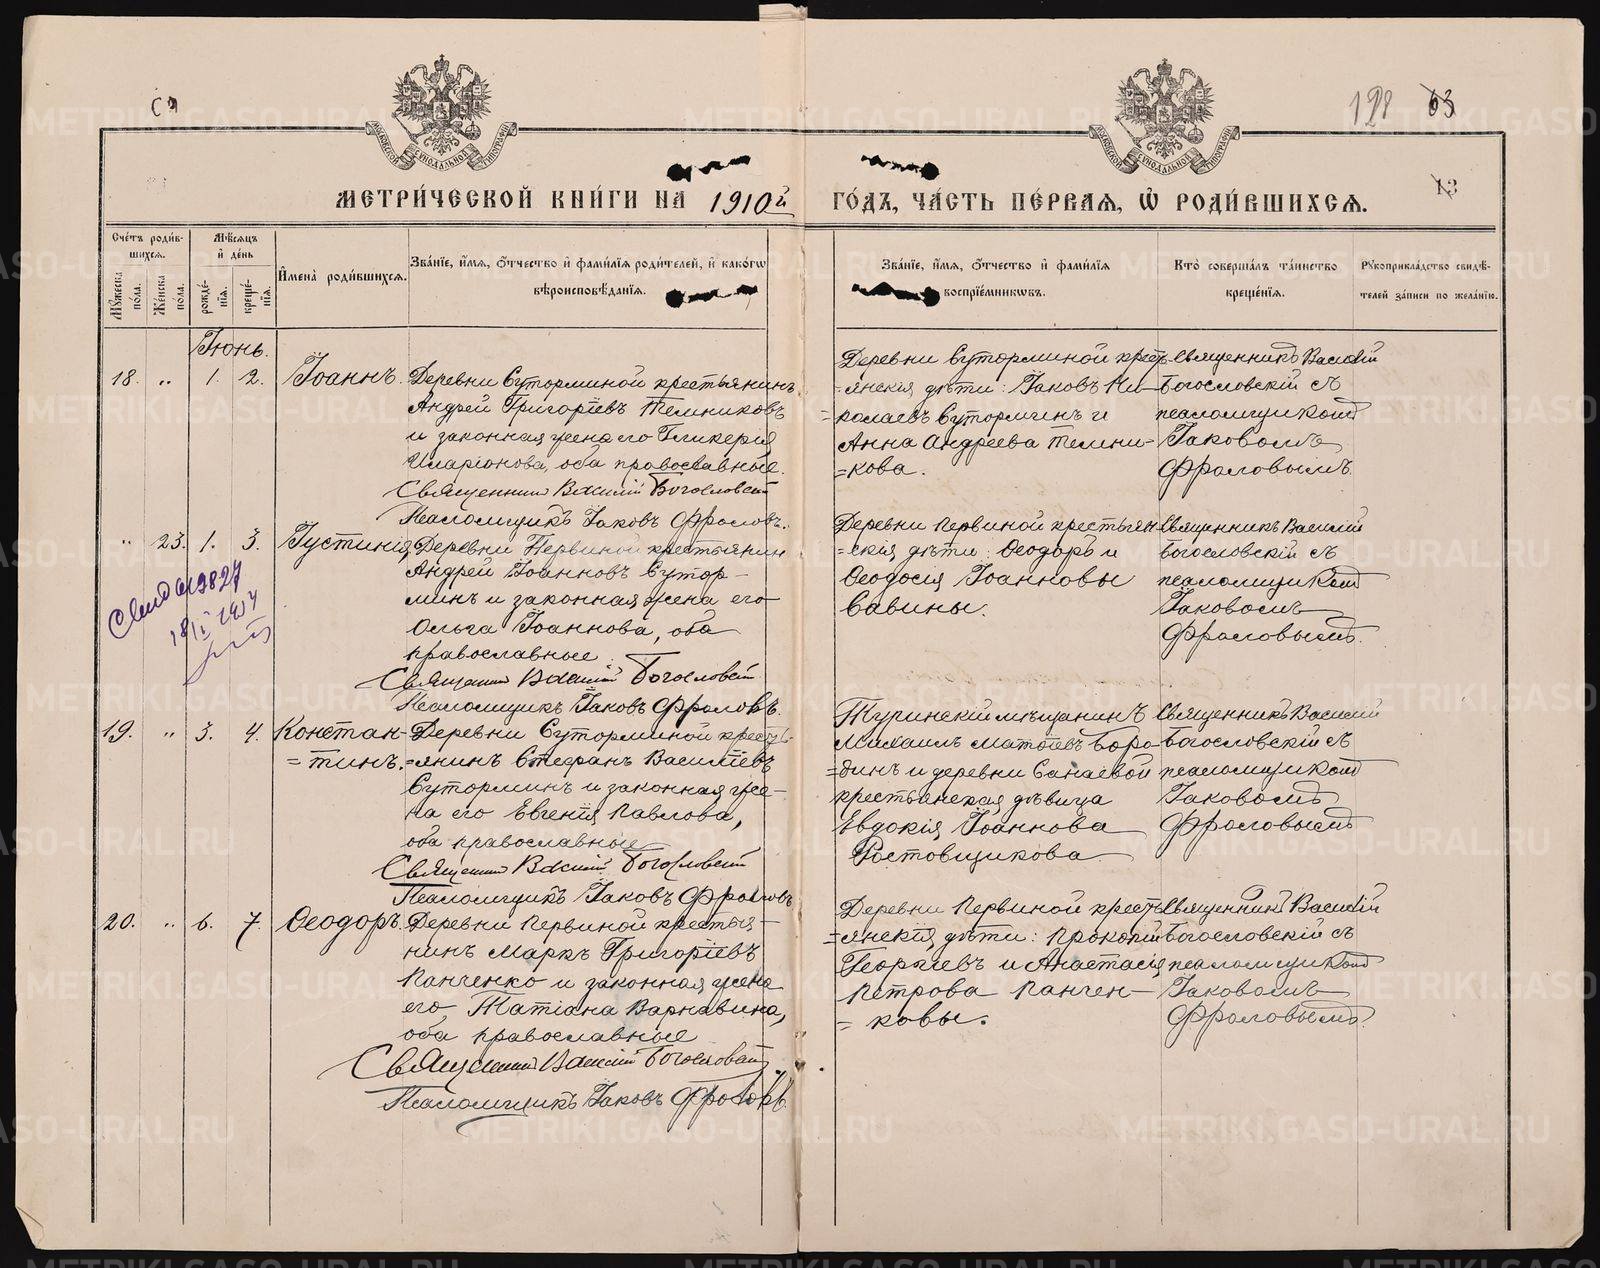 128 63
13
МЕТРИ́ЧЕСКОЙ КНИ́ГИ НА 1910й ГО́ДЪ, ЧА́СТЬ ПЕ́РВАЯ, Ѡ РОДИ́ВШИХСЯ.
Сче́тъ роди́в-
шихся.
Мѣ́сяцъ
и҆ де́нь
И҆мена̀ роди́вшихся.
Зва́нїе, и҆́мя, ѻ҆́тчество и҆ фами́лїя роди́телей, и҆ како́гѡ
вѣроисповѣ́данїя.
Мꙋ́жеска
пола.
Же́нска
пола.
рожде́-
нїя.
креще́-
нїя.
Зва́нїе, и҆́мя, ѻ҆́тчество и҆ фами́лїя
воспрїе́мникѡвъ.
Кто̀ соверша́лъ та́инство
креще́нїя.
Рꙋкоприкла́дство свидѣ́-
телей за́писи по жела́нїю.
Іюнь.
18. „ 1. 2. Іоаннъ. Деревни Суторминой крестьянинъ
Андрей Григоріевъ Темниковъ
и законная жена его Гликерія
Иларіонова, оба православные.
Священникъ Василій Богословскій
Псаломщикъ Іаковъ Фроловъ.
Деревни Суторминой кресть-
=янскія дѣти: Іаковъ Ни-
=колаевъ Сутормин и
Анна Андреева Темни-
=кова.
Священникъ Василій
Богословскій съ
псаломщикомъ
Іаковомъ
Фроловымъ.
„ 23. 1. 3. Іустинія. Деревни Первиной крестьянин
Андрей Іоанновъ Сутор-
минъ и законная жена его
Ольга Іоаннова, оба
православные.
Священникъ Василій Богословскій
Псаломщикъ Іаковъ Фроловъ.
Деревни Первиной крестьян-
=скія дѣти: Ѳеодоръ и
Ѳеодосія Іоанновы
Савины.
Священникъ Василій
Богословскій съ
псаломщикомъ
Іаковомъ
Фроловымъ.
19. „ 3. 4. Констан-
=тинъ.
Деревни Суторминой кресть-
=янинъ Стефанъ Василіевъ
Сутормин и законная же-
на его Евгенія Павлова,
оба православные
Священникъ Василій Богословскій
Псаломщикъ Іаковъ Фроловъ
Туринскій мѣщанинъ
Михаилъ Матѳіевъ Боро-
=динъ и деревни Санаевой
крестьянская дѣвица
Евдокія Іоаннова
Ростовщикова.
Священникъ Василій
Богословскій съ
псаломщикомъ
Іаковомъ
Фроловымъ
20. „ 6. 7. Ѳеодоръ. Деревни Первиной крестья-
нинъ Маркъ Григоріевъ
Панченко и законная жена
его, Татіана Варнавина,
оба православные
Священникъ Василій Богословскій
Псаломщикъ Іаковъ Фроловъ.
Деревни Первиной кресть-
=янскія дѣти: Прокопій
Георгіевъ и Анастасія
Петрова Панчен-
=ковы.
Священникъ Василій
Богословскій съ
псаломщикомъ
Іаковомъ
Фроловымъ.
METRIKI.GASO-URAL.RU